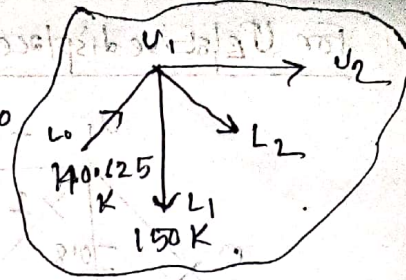 U1
U2
L0
L2
140.625
K
L1
150 K